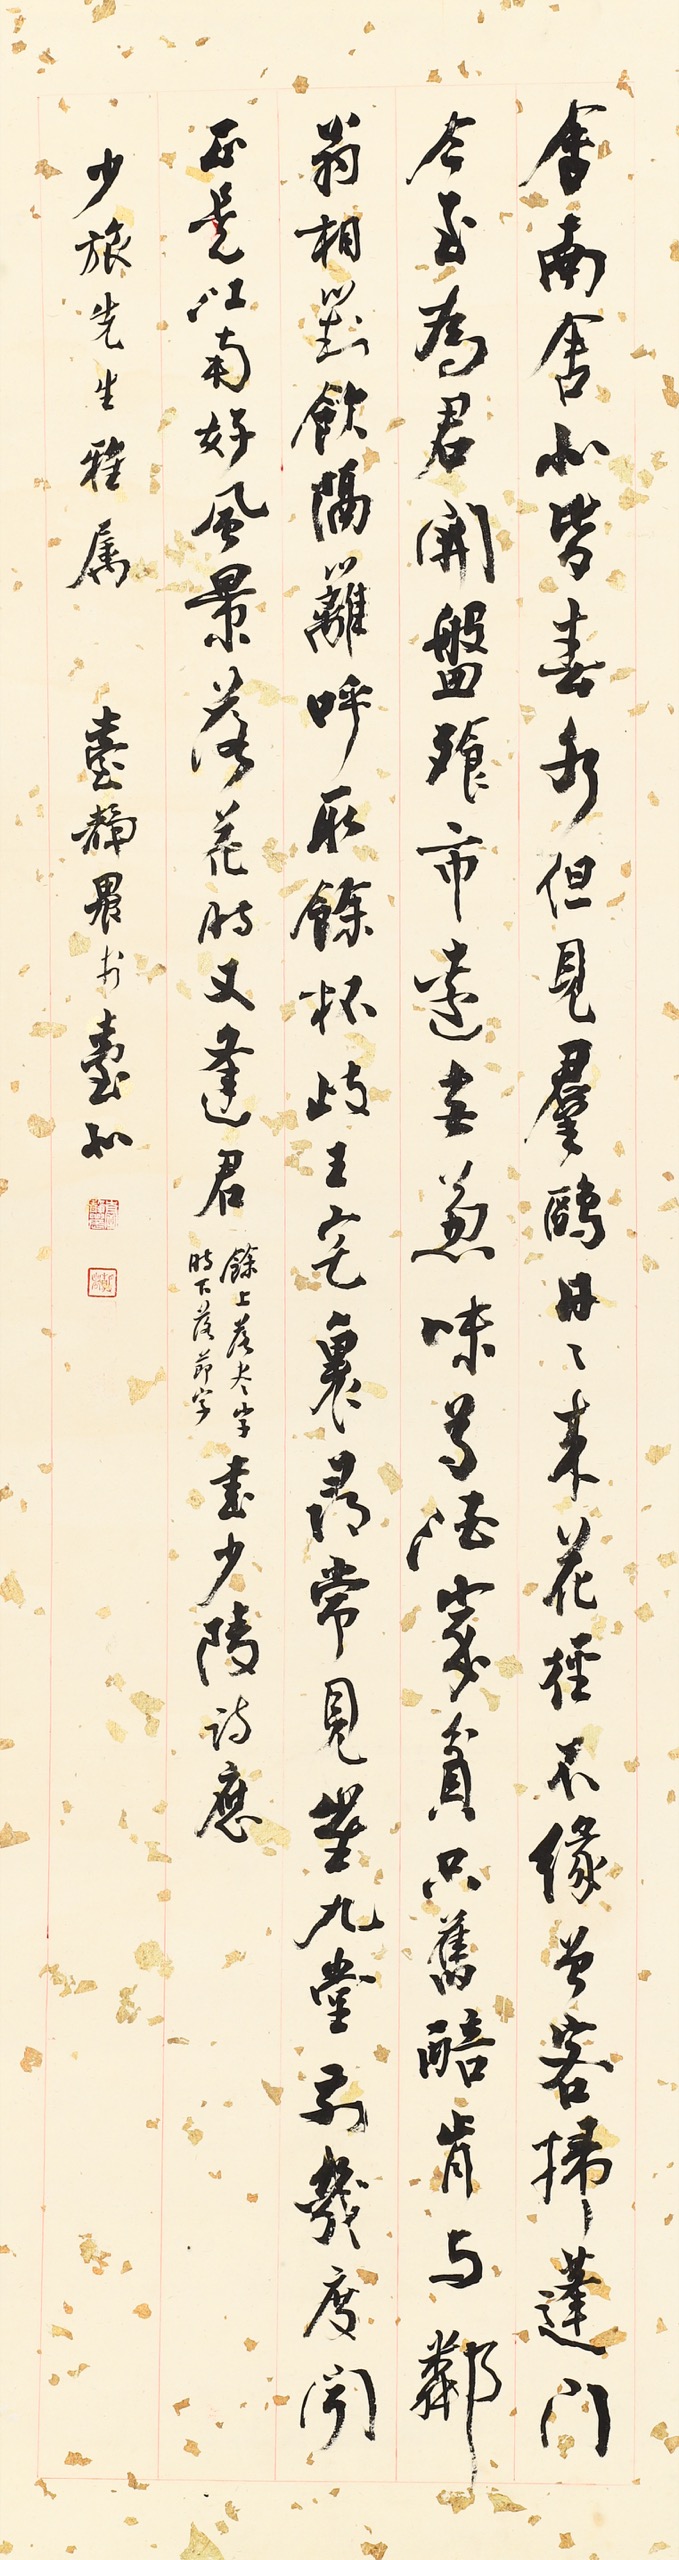 舍南舍北皆春水但見羣鷗日〻来花徑不緣曾客掃蓬門
今為君開盤飱市遠無兼味尊酒家貧只舊醅肯與鄰
翁相對飲隔籬呼取餘杯歧王宅裏尋常見崔九堂前幾度聞
正是江南好風景落花時又逢君
餘上落盡字
時下落節字
書少陵詩應
少旅先生雅屬
臺靜農於臺北